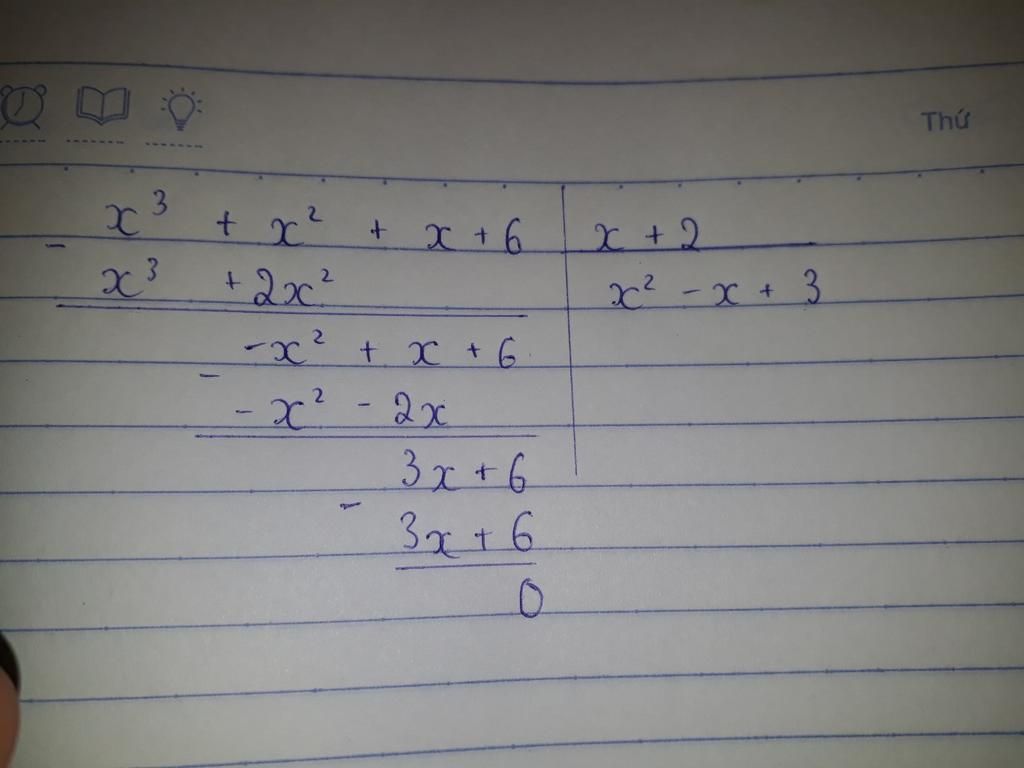 Thứ
x³ + x² + x + 6 | x + 2
-
x³ + 2x² | x² - x + 3
-x² + x + 6
-
- x² - 2x
3x + 6
-
3x + 6
0